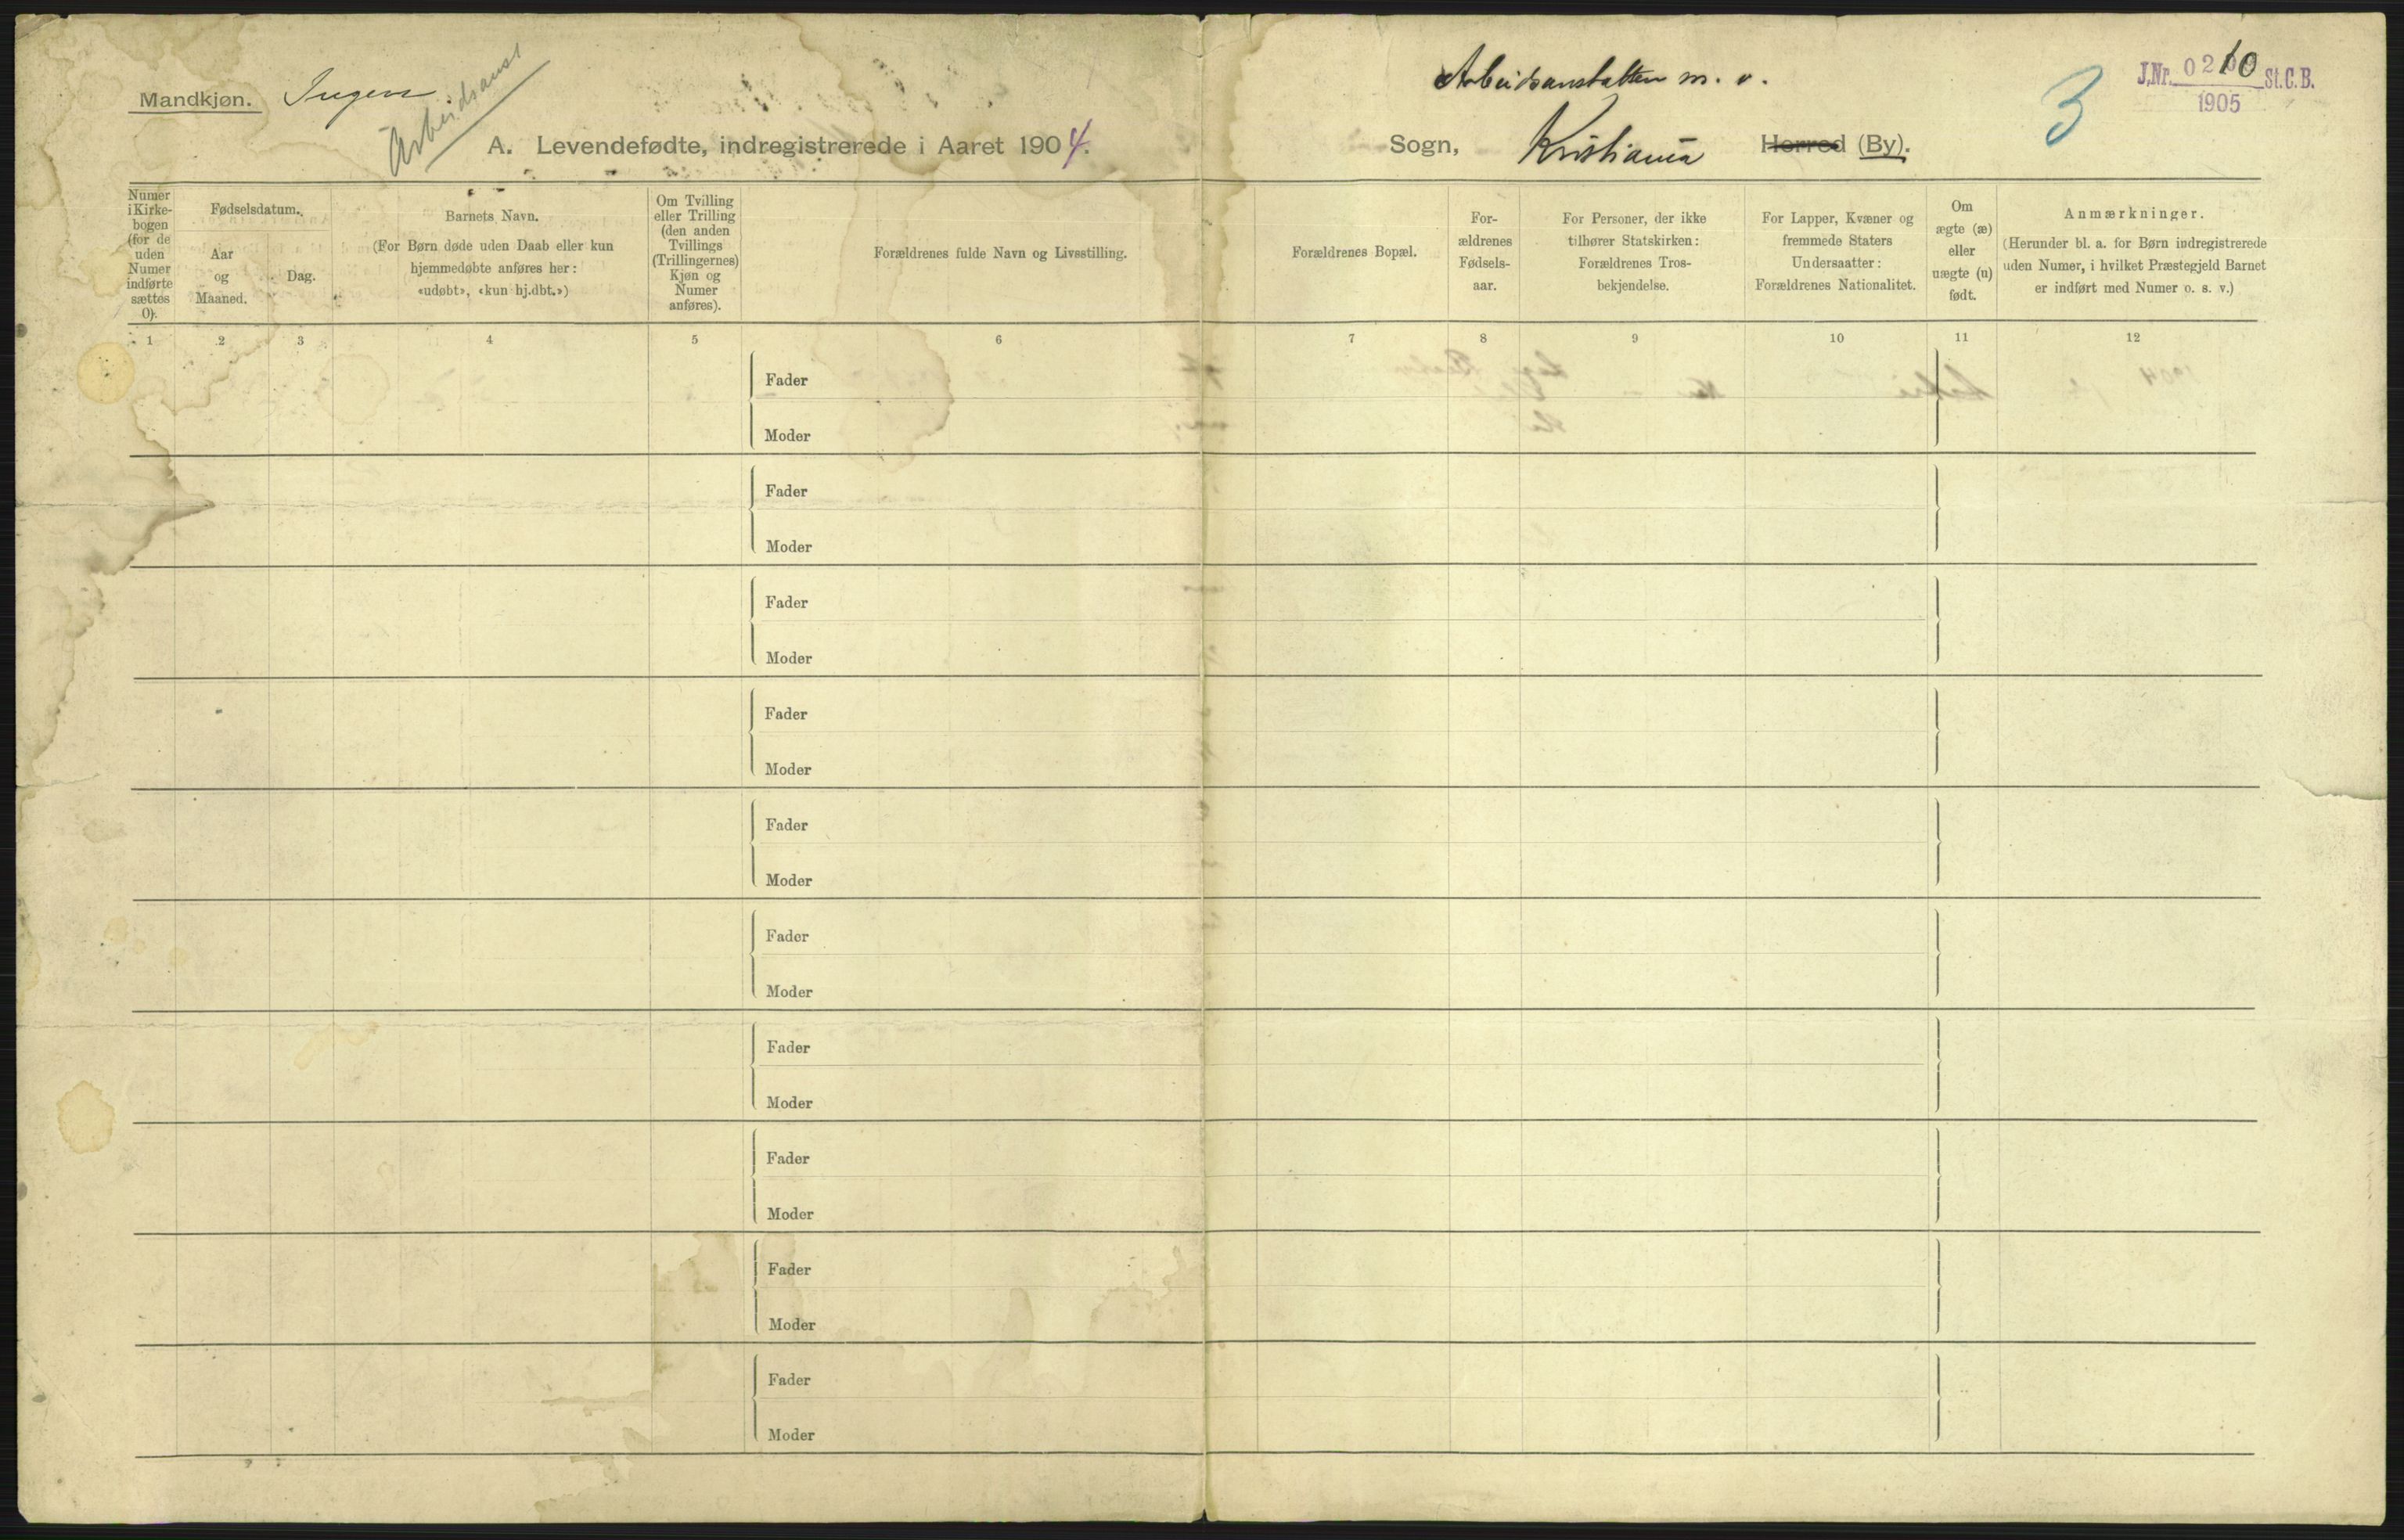 Mandkjøn. Ingen
Arbeidsanst
A. Levendefødte, indregistrerede i Aaret 1904.
Arbeidsanstalten m. v.
Sogn, Kristiania Herred (By).
3
J.Nr. 0210 St.C.B.
1905
Numer
i Kirke-
bogen
(for de
uden
Numer
indførte
sættes
0).
Fødselsdatum.
Aar
og
Maaned.
Dag.
Barnets Navn.
(For Børn døde uden Daab eller kun
hjemmedøbte anføres her:
«udøbt», «kun hj.dbt.»)
Om Tvilling
eller Trilling
(den anden
Tvillings
(Trillingernes)
Kjøn og
Numer
anføres).
Forældrenes fulde Navn og Livsstilling.
Forældrenes Bopæl.
For-
ældrenes
Fødsels-
aar.
For Personer, der ikke
tilhører Statskirken:
Forældrenes Tros-
bekjendelse.
For Lapper, Kvæner og
fremmede Staters
Undersaatter:
Forældrenes Nationalitet.
Om
ægte (æ)
eller
uægte (u)
født.
Anmærkninger.
(Herunder bl. a. for Børn indregistrerede
uden Numer, i hvilket Præstegjeld Barnet
er indført med Numer o. s. v.)
1 2 3 4 5 6 7 8 9 10 11 12
Fader
Moder
Fader
Moder
Fader
Moder
Fader
Moder
Fader
Moder
Fader
Moder
Fader
Moder
Fader
Moder
Fader
Moder
Fader
Moder